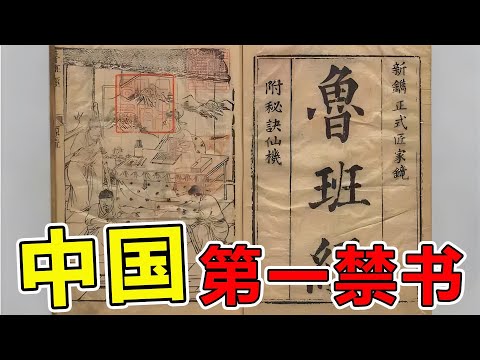 新鐫正式匠家鏡
魯班經
附秘訣仙機
中国第一禁书